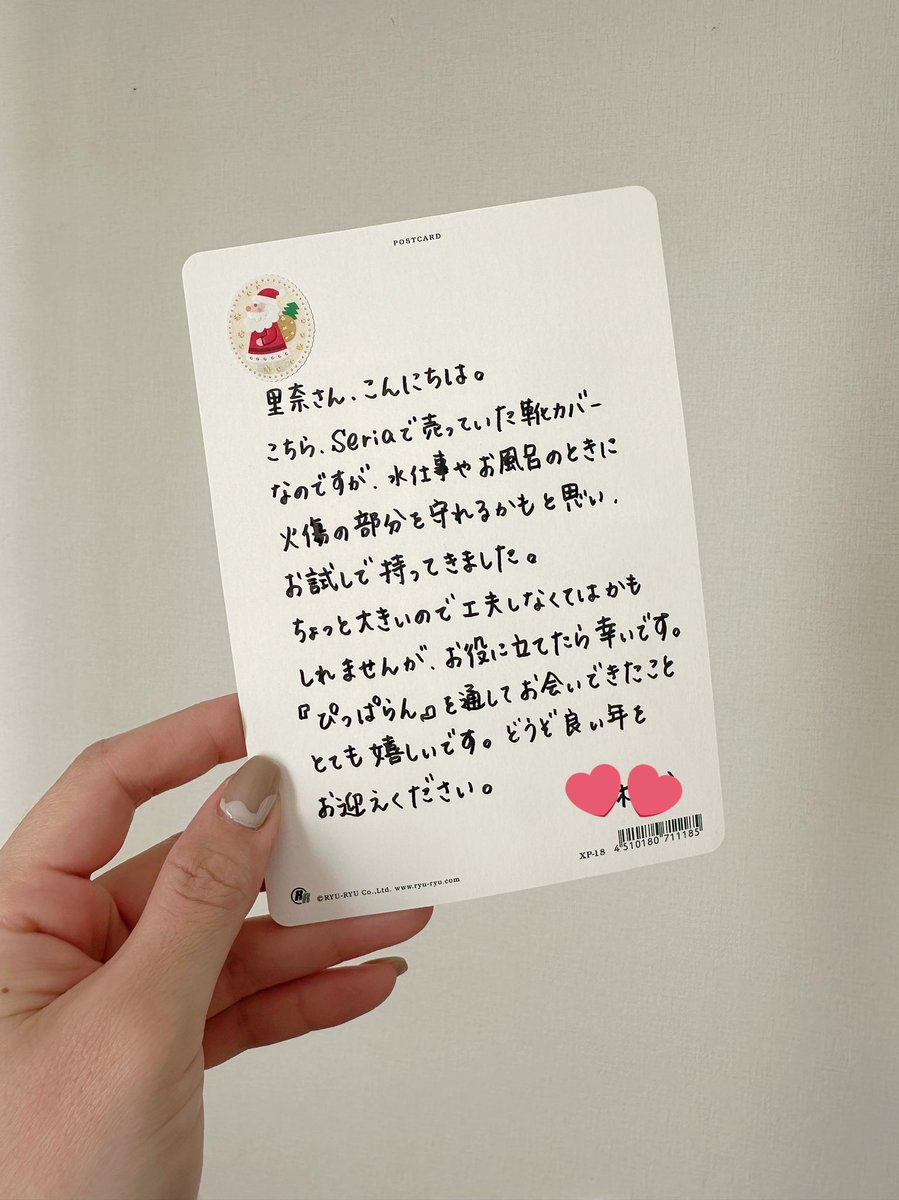 POSTCARD
里奈さん、こんにちは。
こちら、Seriaで売っていた靴カバー
なのですが、水仕事やお風呂のときに
火傷の部分を守れるかもと思い、
お試しで持ってきました。
ちょっと大きいので工夫しなくてはかも
しれませんが、お役に立てたら幸いです。
『ぴっぱらん』を通してお会いできたこと
とても嬉しいです。どうぞ良い年を
お迎えください。
XP-18
4510180711185
©RYU-RYU Co.,Ltd. www.ryu-ryu.com